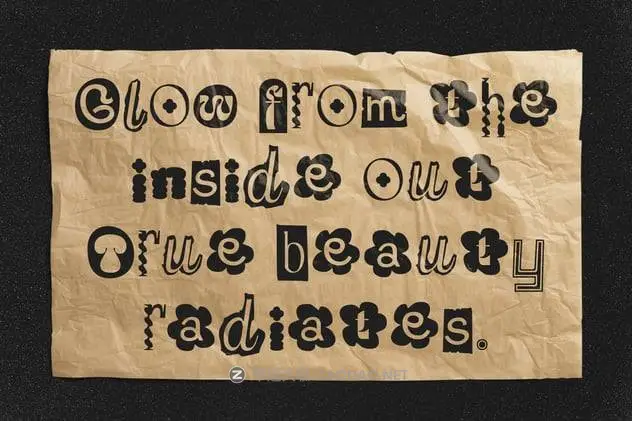 Glow from the
inside out
True beauty
radiates.